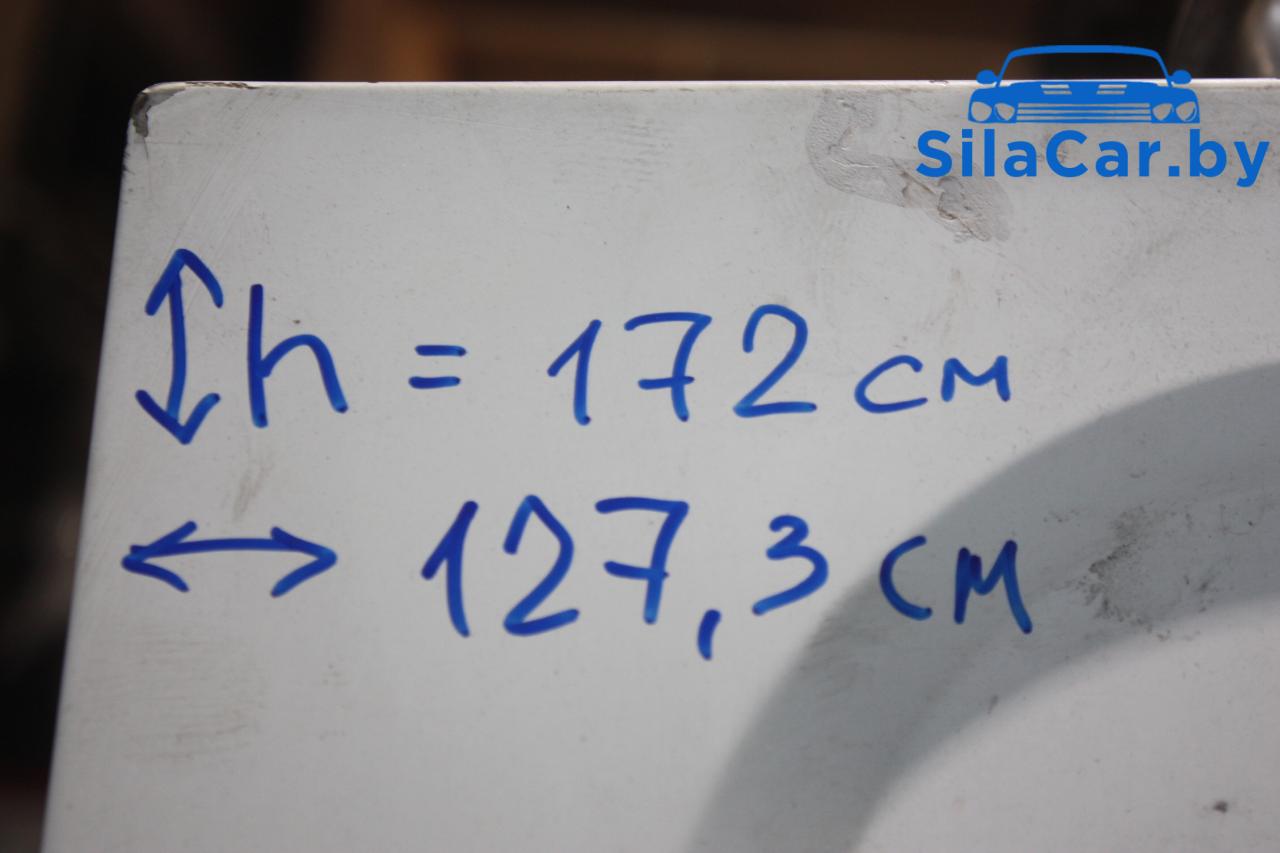 SilaCar.by
h = 172 см
127,3 см